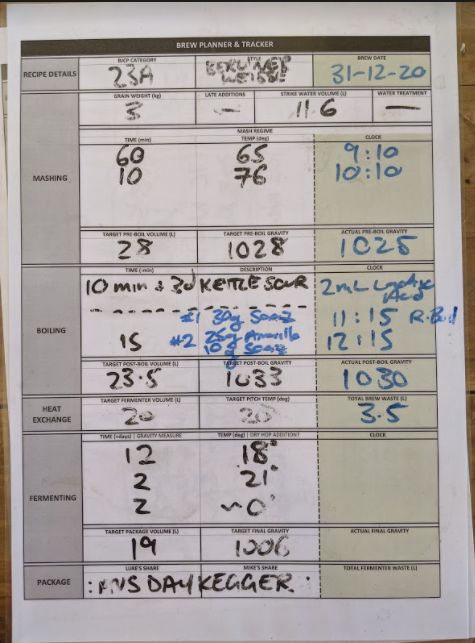 BREW PLANNER & TRACKER
RECIPE DETAILS
BJCP CATEGORY STYLE BREW DATE
23A BERLINER WEISSE 31-12-20
GRAIN WEIGHT (kg) LATE ADDITIONS STRIKE WATER VOLUME (L) WATER TREATMENT
3 — 11.6 —
MASHING
MASH REGIME
TIME (min) TEMP (deg) CLOCK
60 65 9:10
10 76 10:10
TARGET PRE-BOIL VOLUME (L) TARGET PRE-BOIL GRAVITY ACTUAL PRE-BOIL GRAVITY
28 1028 1025
BOILING
TIME (-min) DESCRIPTION CLOCK
10 min & 3d KETTLE SOUR 2mL Lactic Acid
#1 30g Saaz 11:15 R.Boil
15 #2 25g Amarillo 12:15
10g Saaz
TARGET POST-BOIL VOLUME (L) TARGET POST-BOIL GRAVITY ACTUAL POST-BOIL GRAVITY
23.5 1033 1030
HEAT EXCHANGE
TARGET FERMENTER VOLUME (L) TARGET PITCH TEMP (deg) TOTAL BREW WASTE (L)
20 20 3.5
FERMENTING
TIME (+days) | GRAVITY MEASURE TEMP (deg) | DRY HOP ADDITION? CLOCK
12 18°
2 21°
2 ~0°
TARGET PACKAGE VOLUME (L) TARGET FINAL GRAVITY ACTUAL FINAL GRAVITY
19 1006
PACKAGE
LUKE'S SHARE MIKE'S SHARE TOTAL FERMENTER WASTE (L)
DAY KEGGER